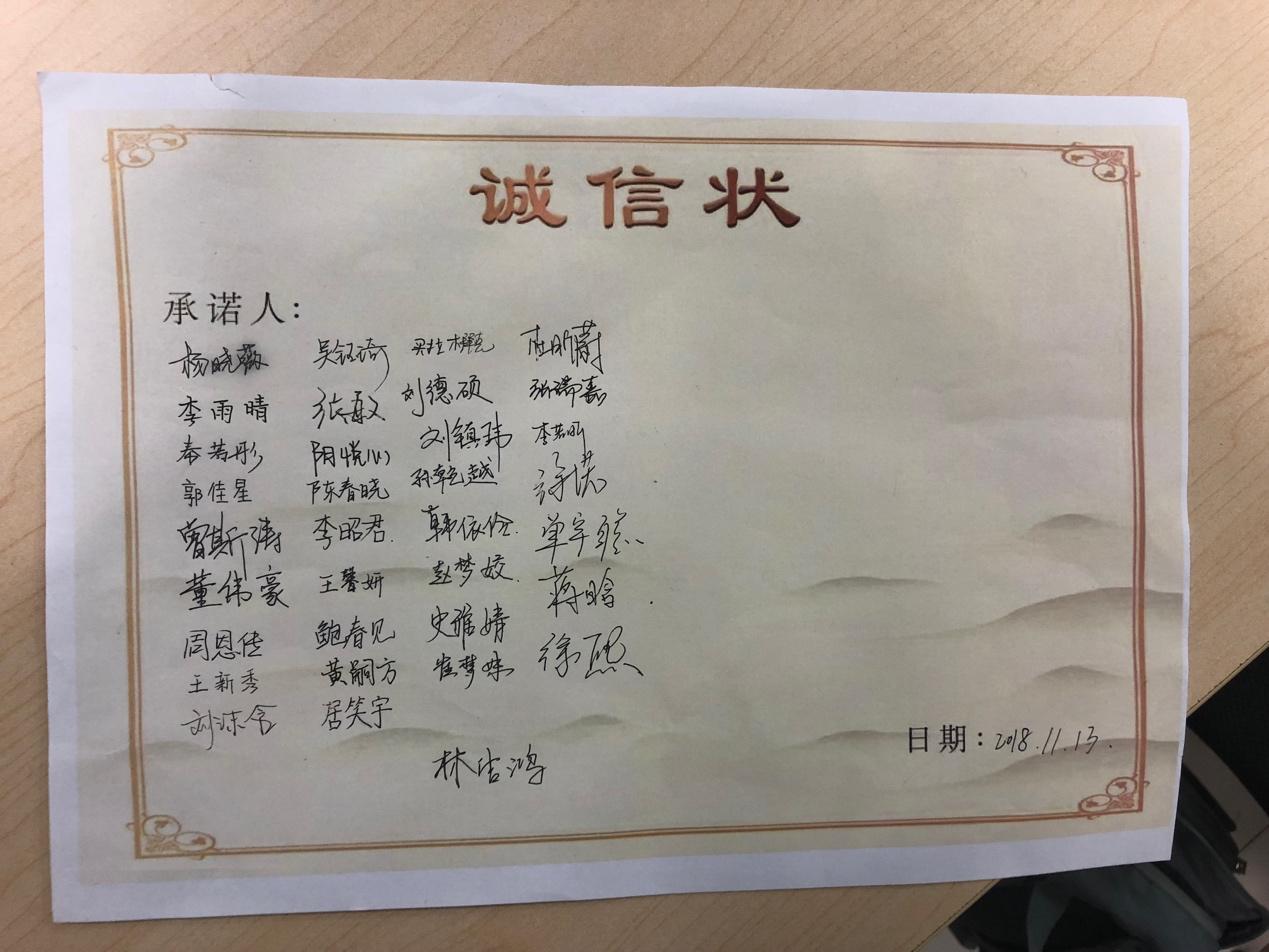 诚信状
承诺人：
杨晓薇 吴钰琦 杜昕蔚
李雨晴 张敏 刘德硕 张瑞嘉
秦若彤 阴悦心 刘镇玮 李若昕
郭佳星 陈春晓 孙乾越 许诺
曹斯涛 李昭君 韩依伦 单宇聪
董伟豪 王馨妍 赵梦姣 蒋晗
周恩传 鲍春见 史雅婧 徐熙
王新秀 黄嗣方 崔梦姝
刘沫含 居笑宇
林浩鸿
日期：2018.11.13.